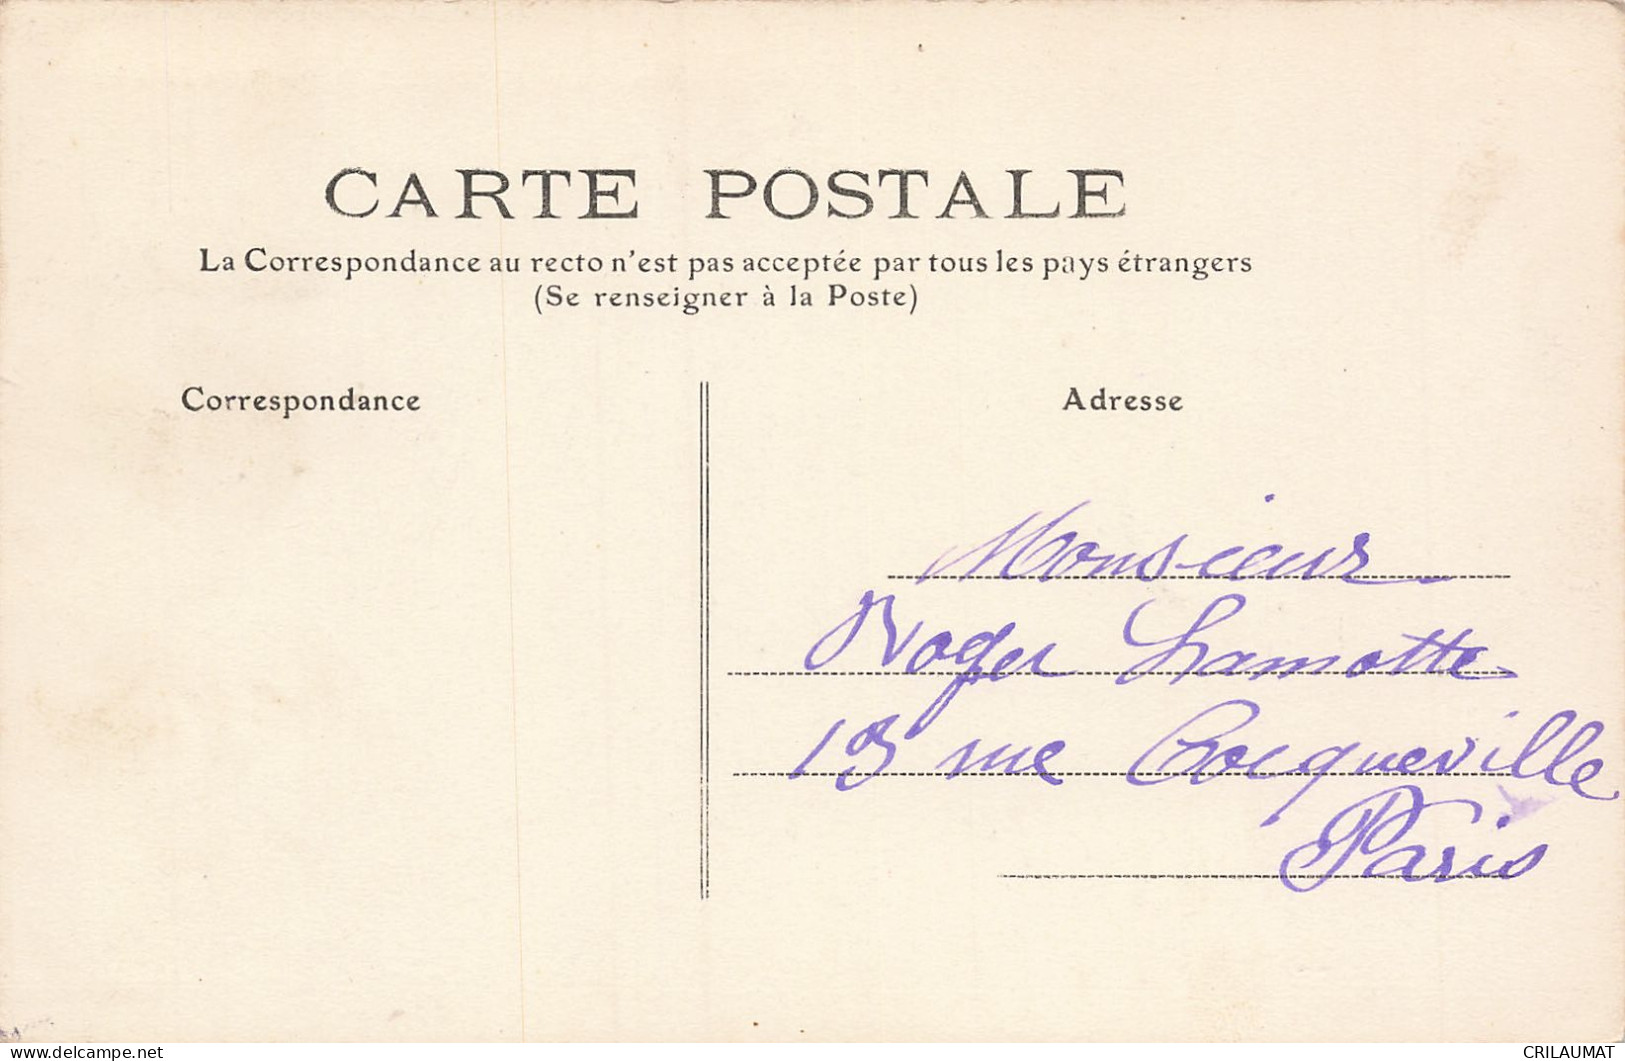 CARTE POSTALE
La Correspondance au recto n'est pas acceptée par tous les pays étrangers
(Se renseigner à la Poste)
Correspondance
Adresse
Monsieur
Roger Lamotte
13 rue Tocqueville
Paris
www.delcampe.net
CRILAUMAT